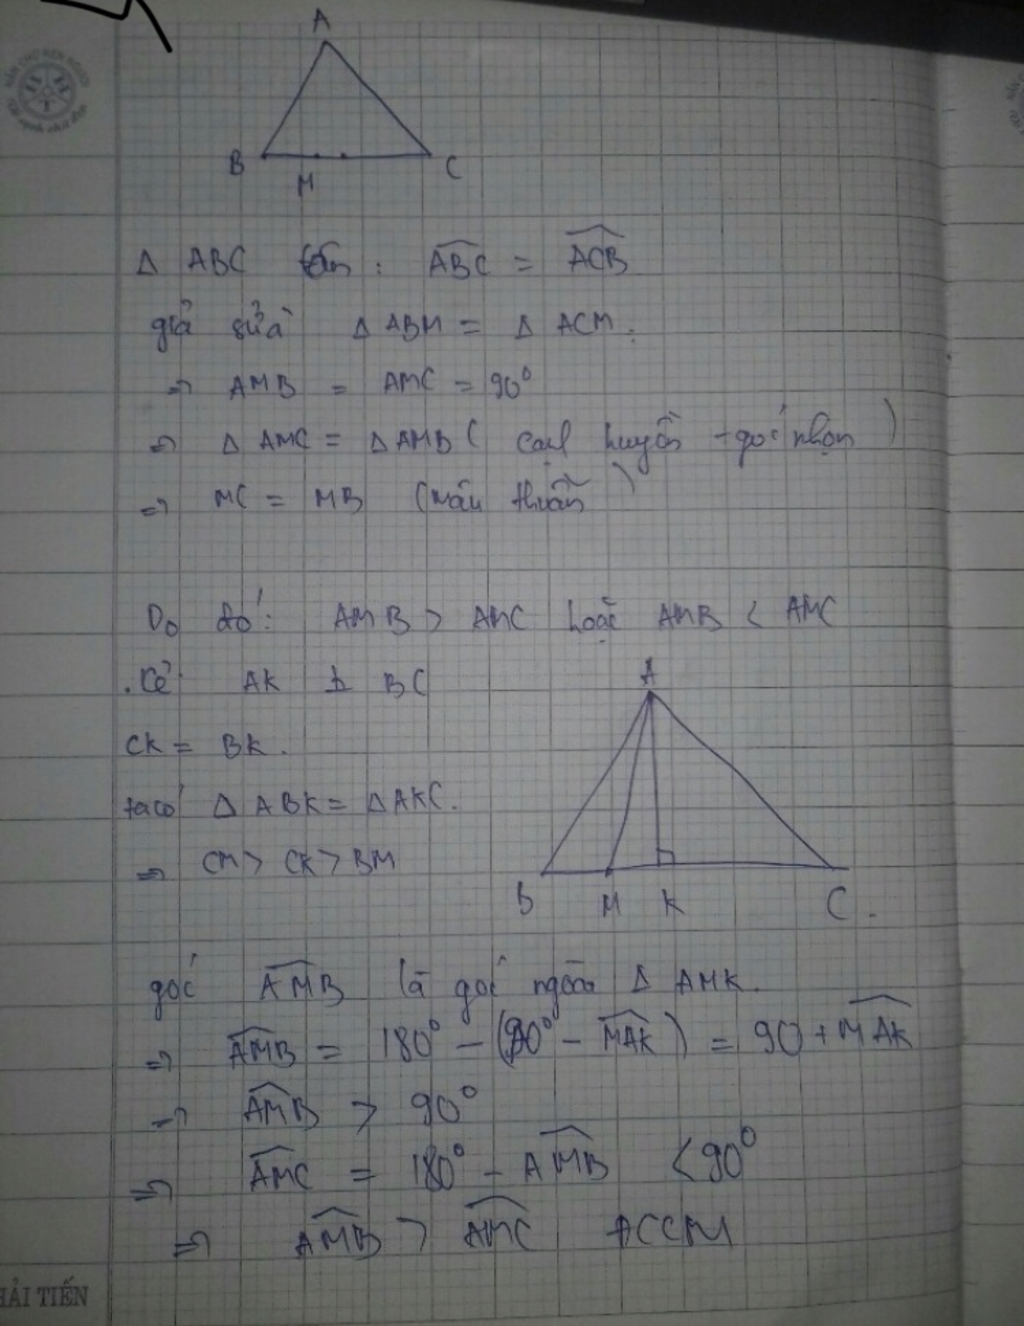 A
B
M
C
Δ ABC cân : ABC = ACB
giả sửa Δ ABM = Δ ACM.
=> AMB = AMC = 90°
=> Δ AMC = Δ AMB ( cạnh huyền - góc nhọn )
=> MC = MB (mâu thuẫn )
Do đó: AMB > AMC hoặc AMB < AMC
. Kẻ AK ⊥ BC
A
CK = BK.
ta có Δ ABK = Δ AKC.
=> CM > CK > BM
B M K C.
góc AMB là góc ngoài Δ AMK.
=> AMB = 180° - (90° - MAK) = 90 + MAK
=> AMB > 90°
=> AMC = 180° - AMB < 90°
=> AMB > AMC ĐCCM
HẢI TIẾN